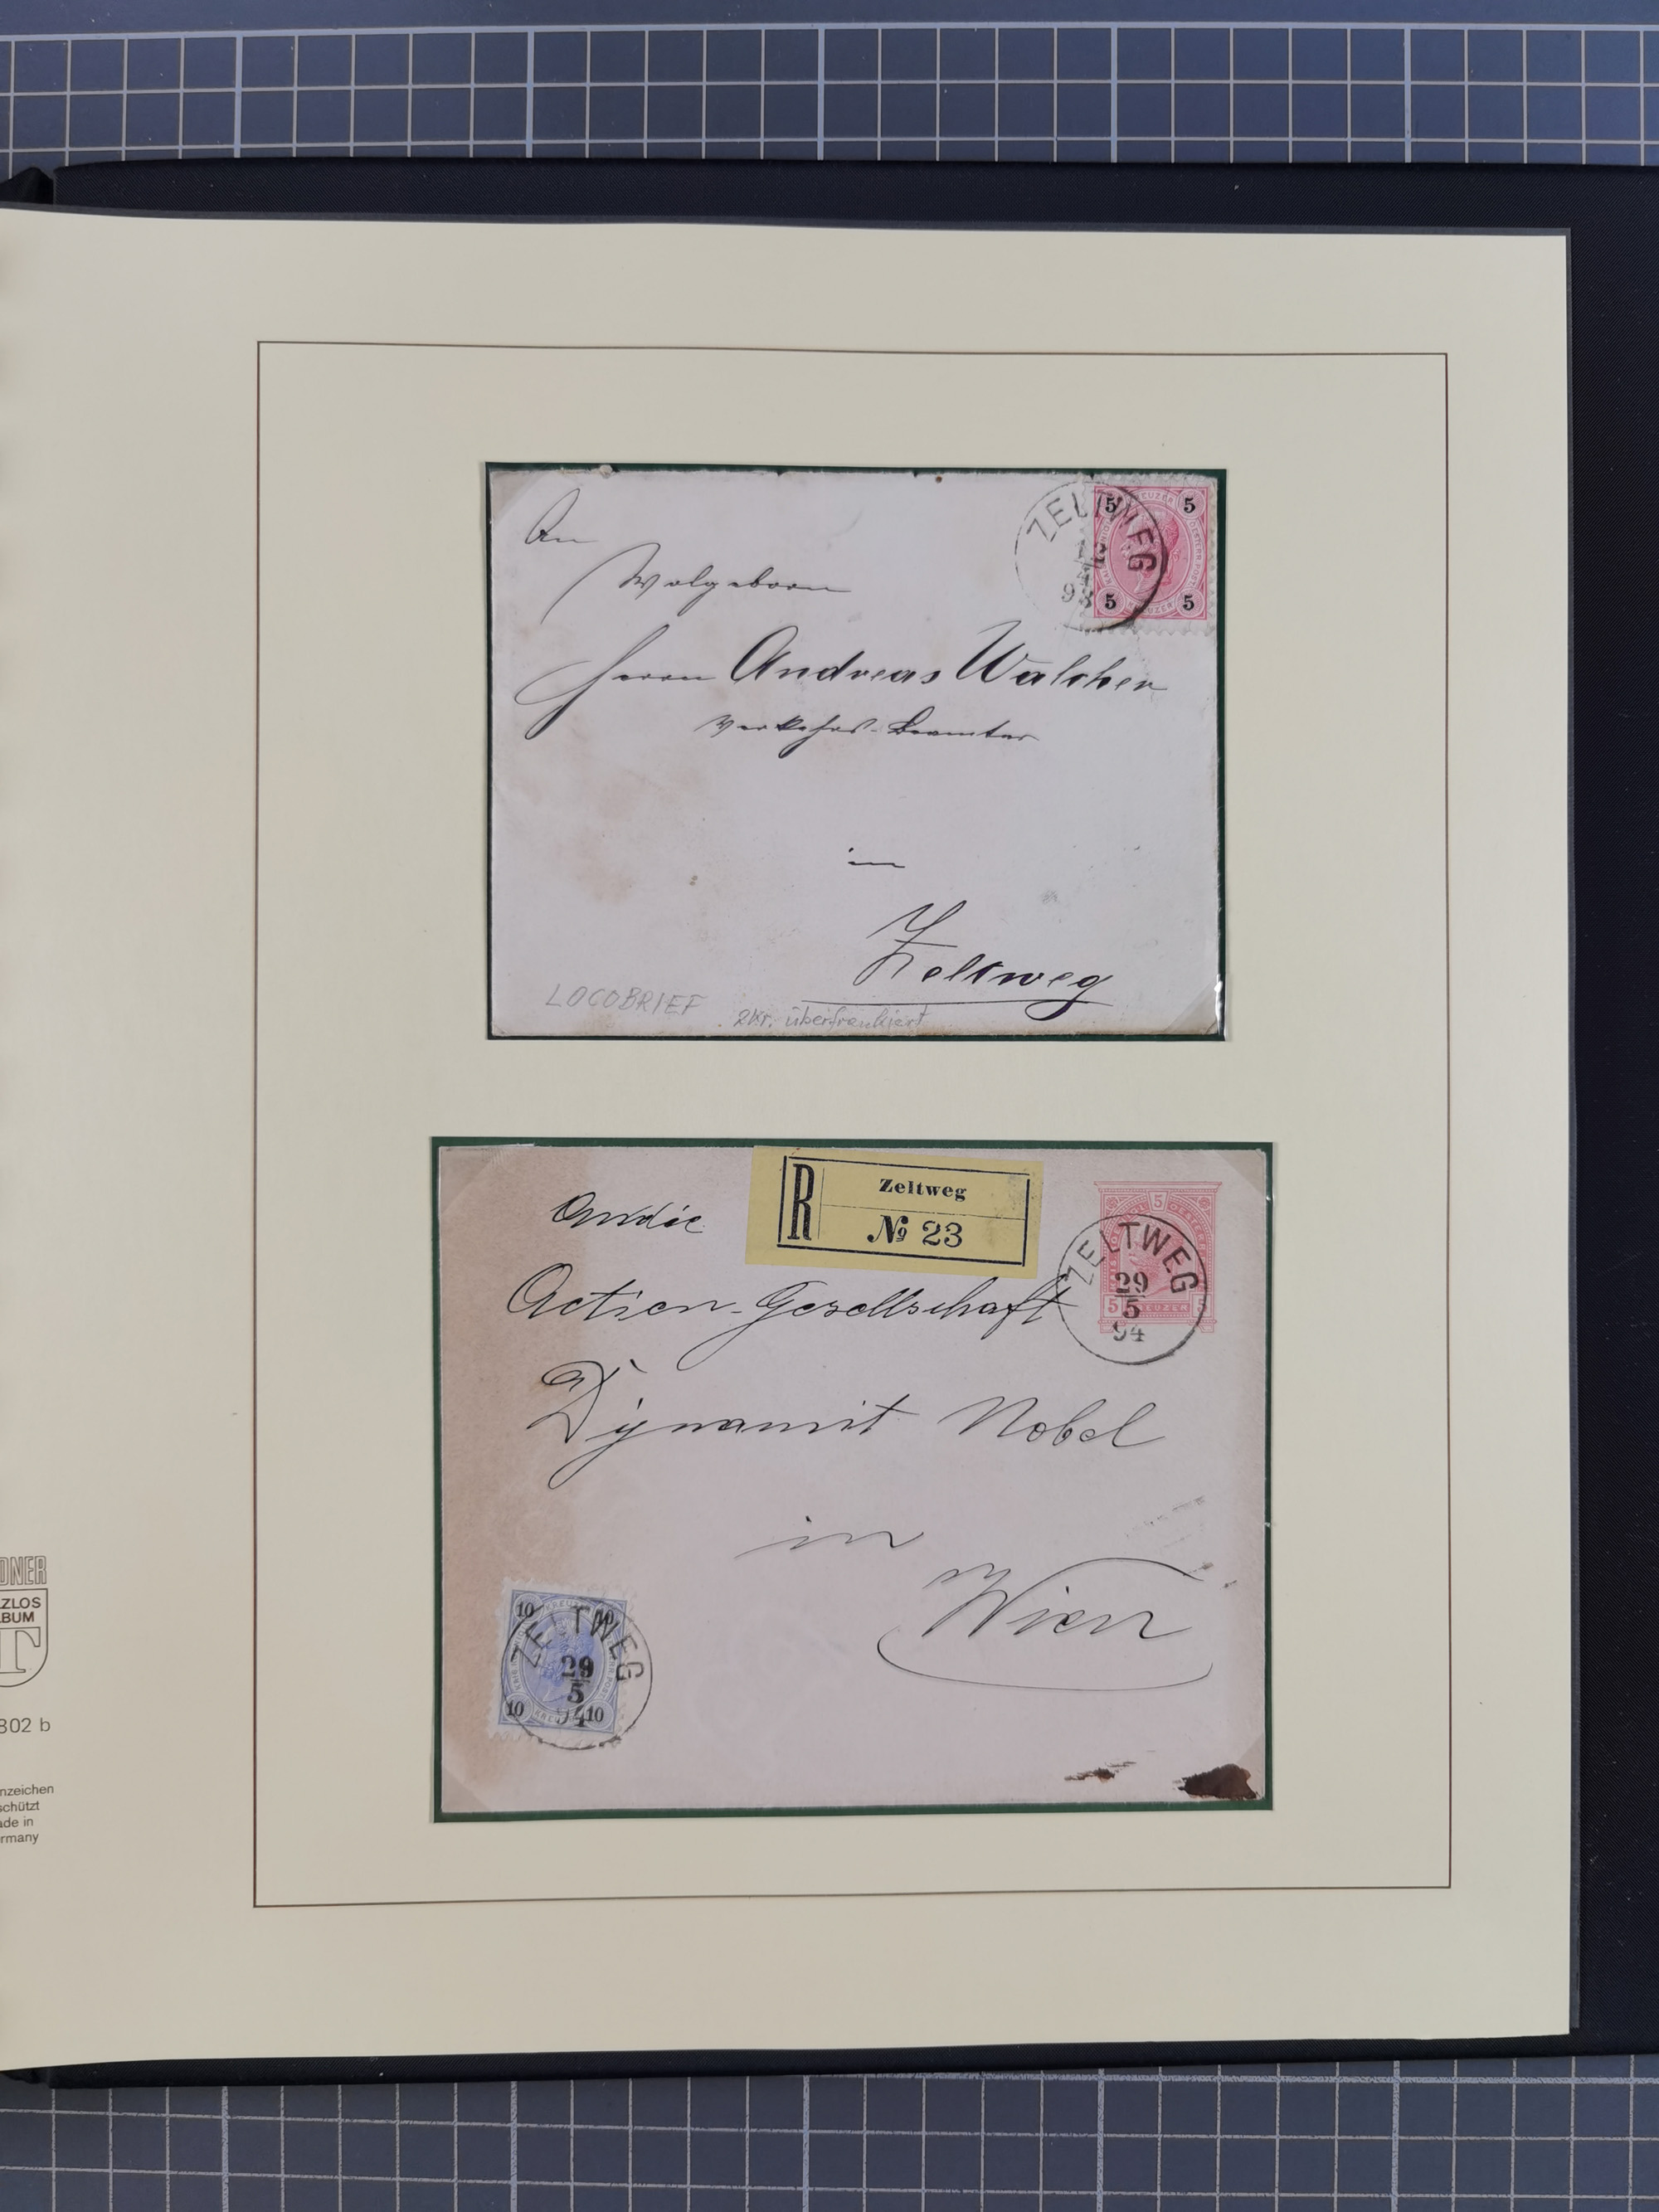 An
Wolgeborn
Herrn Andreas Walcher
Verkehrs-Beamter
in
Zeltweg
LOCOBRIEF
2kr. überfrankiert
ZELTWEG
93
5 KREUZER 5
5 KREUZER 5
R
Zeltweg
№ 23
An die
Actien-Gesellschaft
Dynamit Nobel
in
Wien
5
5 KREUZER 5
ZELTWEG
29
5
94
10 KREUZER 10
10 10
ZELTWEG
29
5
94
DNER
ZLOS
BUM
T
802 b
nzeichen
schützt
ade in
rmany